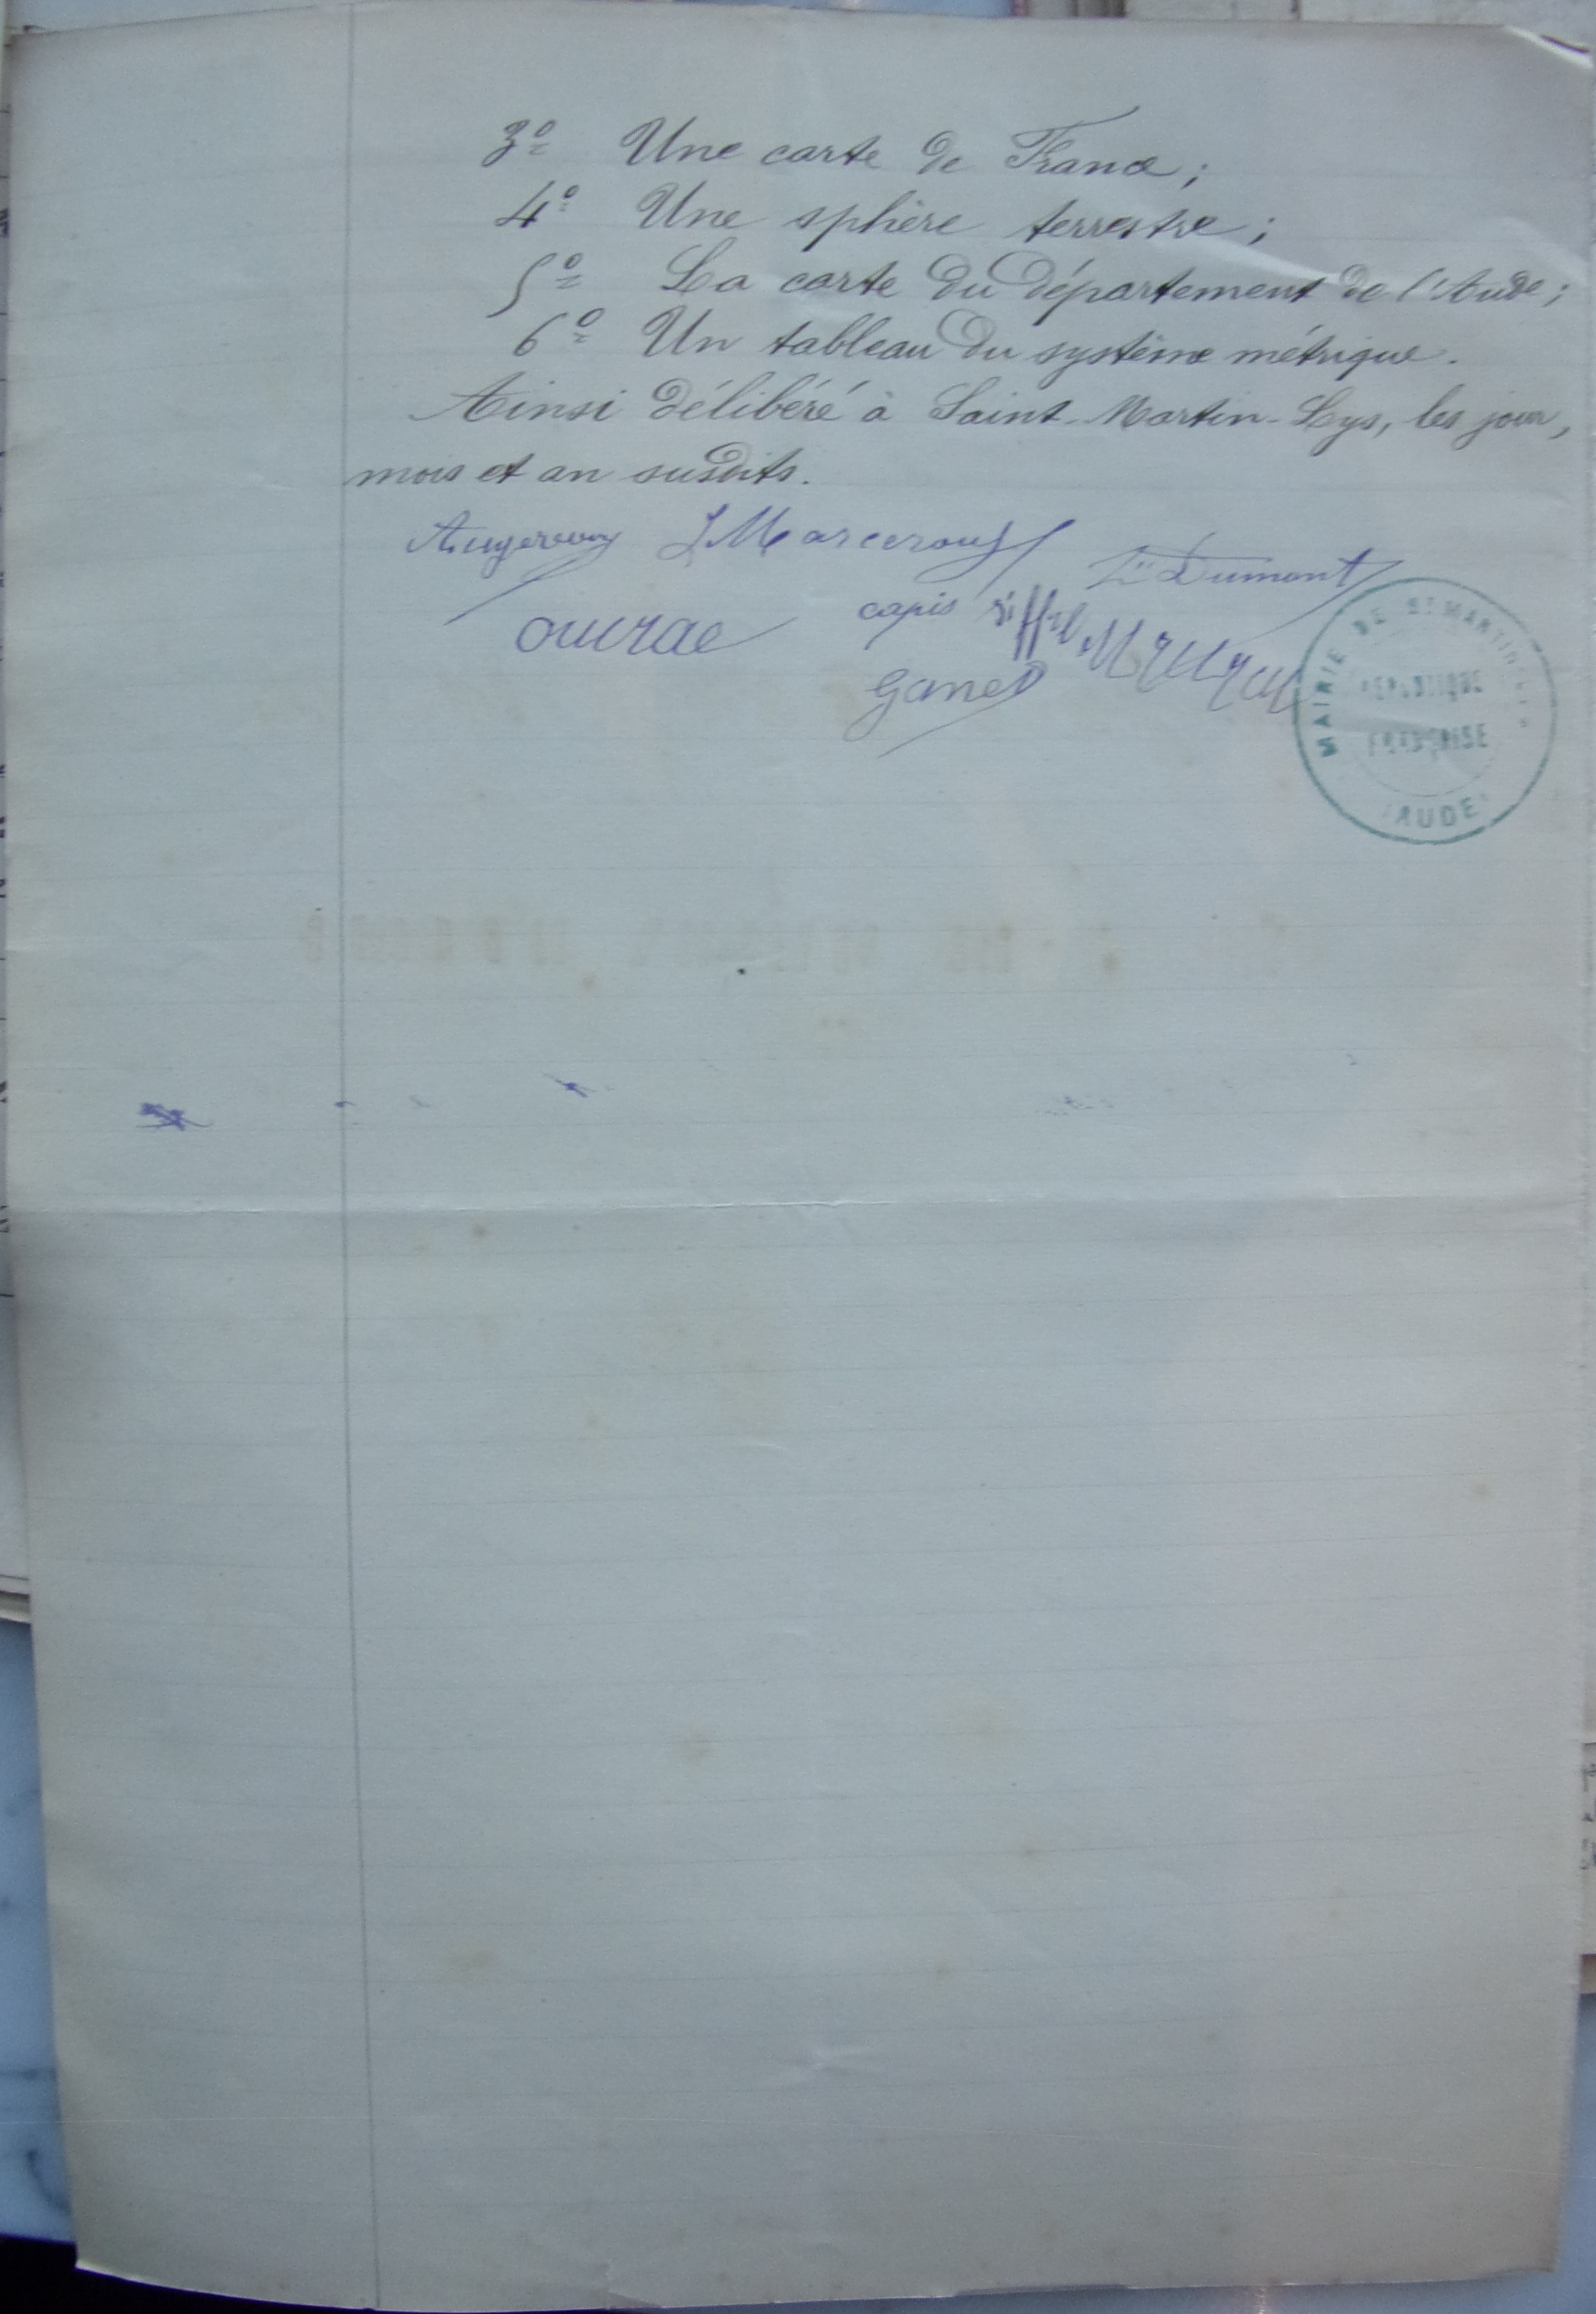 3° Une carte de France;
4° Une sphère terrestre;
5° La carte du département de l'Aude;
6° Un tableau du système métrique.
Ainsi délibéré à Saint-Martin-Lys, les jour,
mois et an susdits.
J Marcerou
Dumont
capis
MAIRIE DE ST MARTIN
RÉPUBLIQUE
FRANÇAISE
AUDE